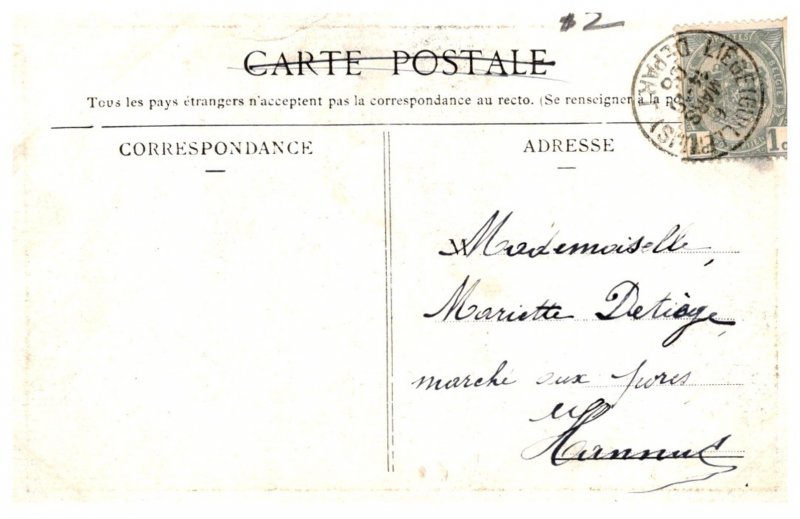 $2
CARTE POSTALE
Tous les pays étrangers n'acceptent pas la correspondance au recto. (Se renseigner à la po
LIEGE (GUILLEMINS)
DEPART
BELGIE
1c
CORRESPONDANCE
ADRESSE
Mademoiselle,
Mariette Detiège,
marché aux porcs
Hannut